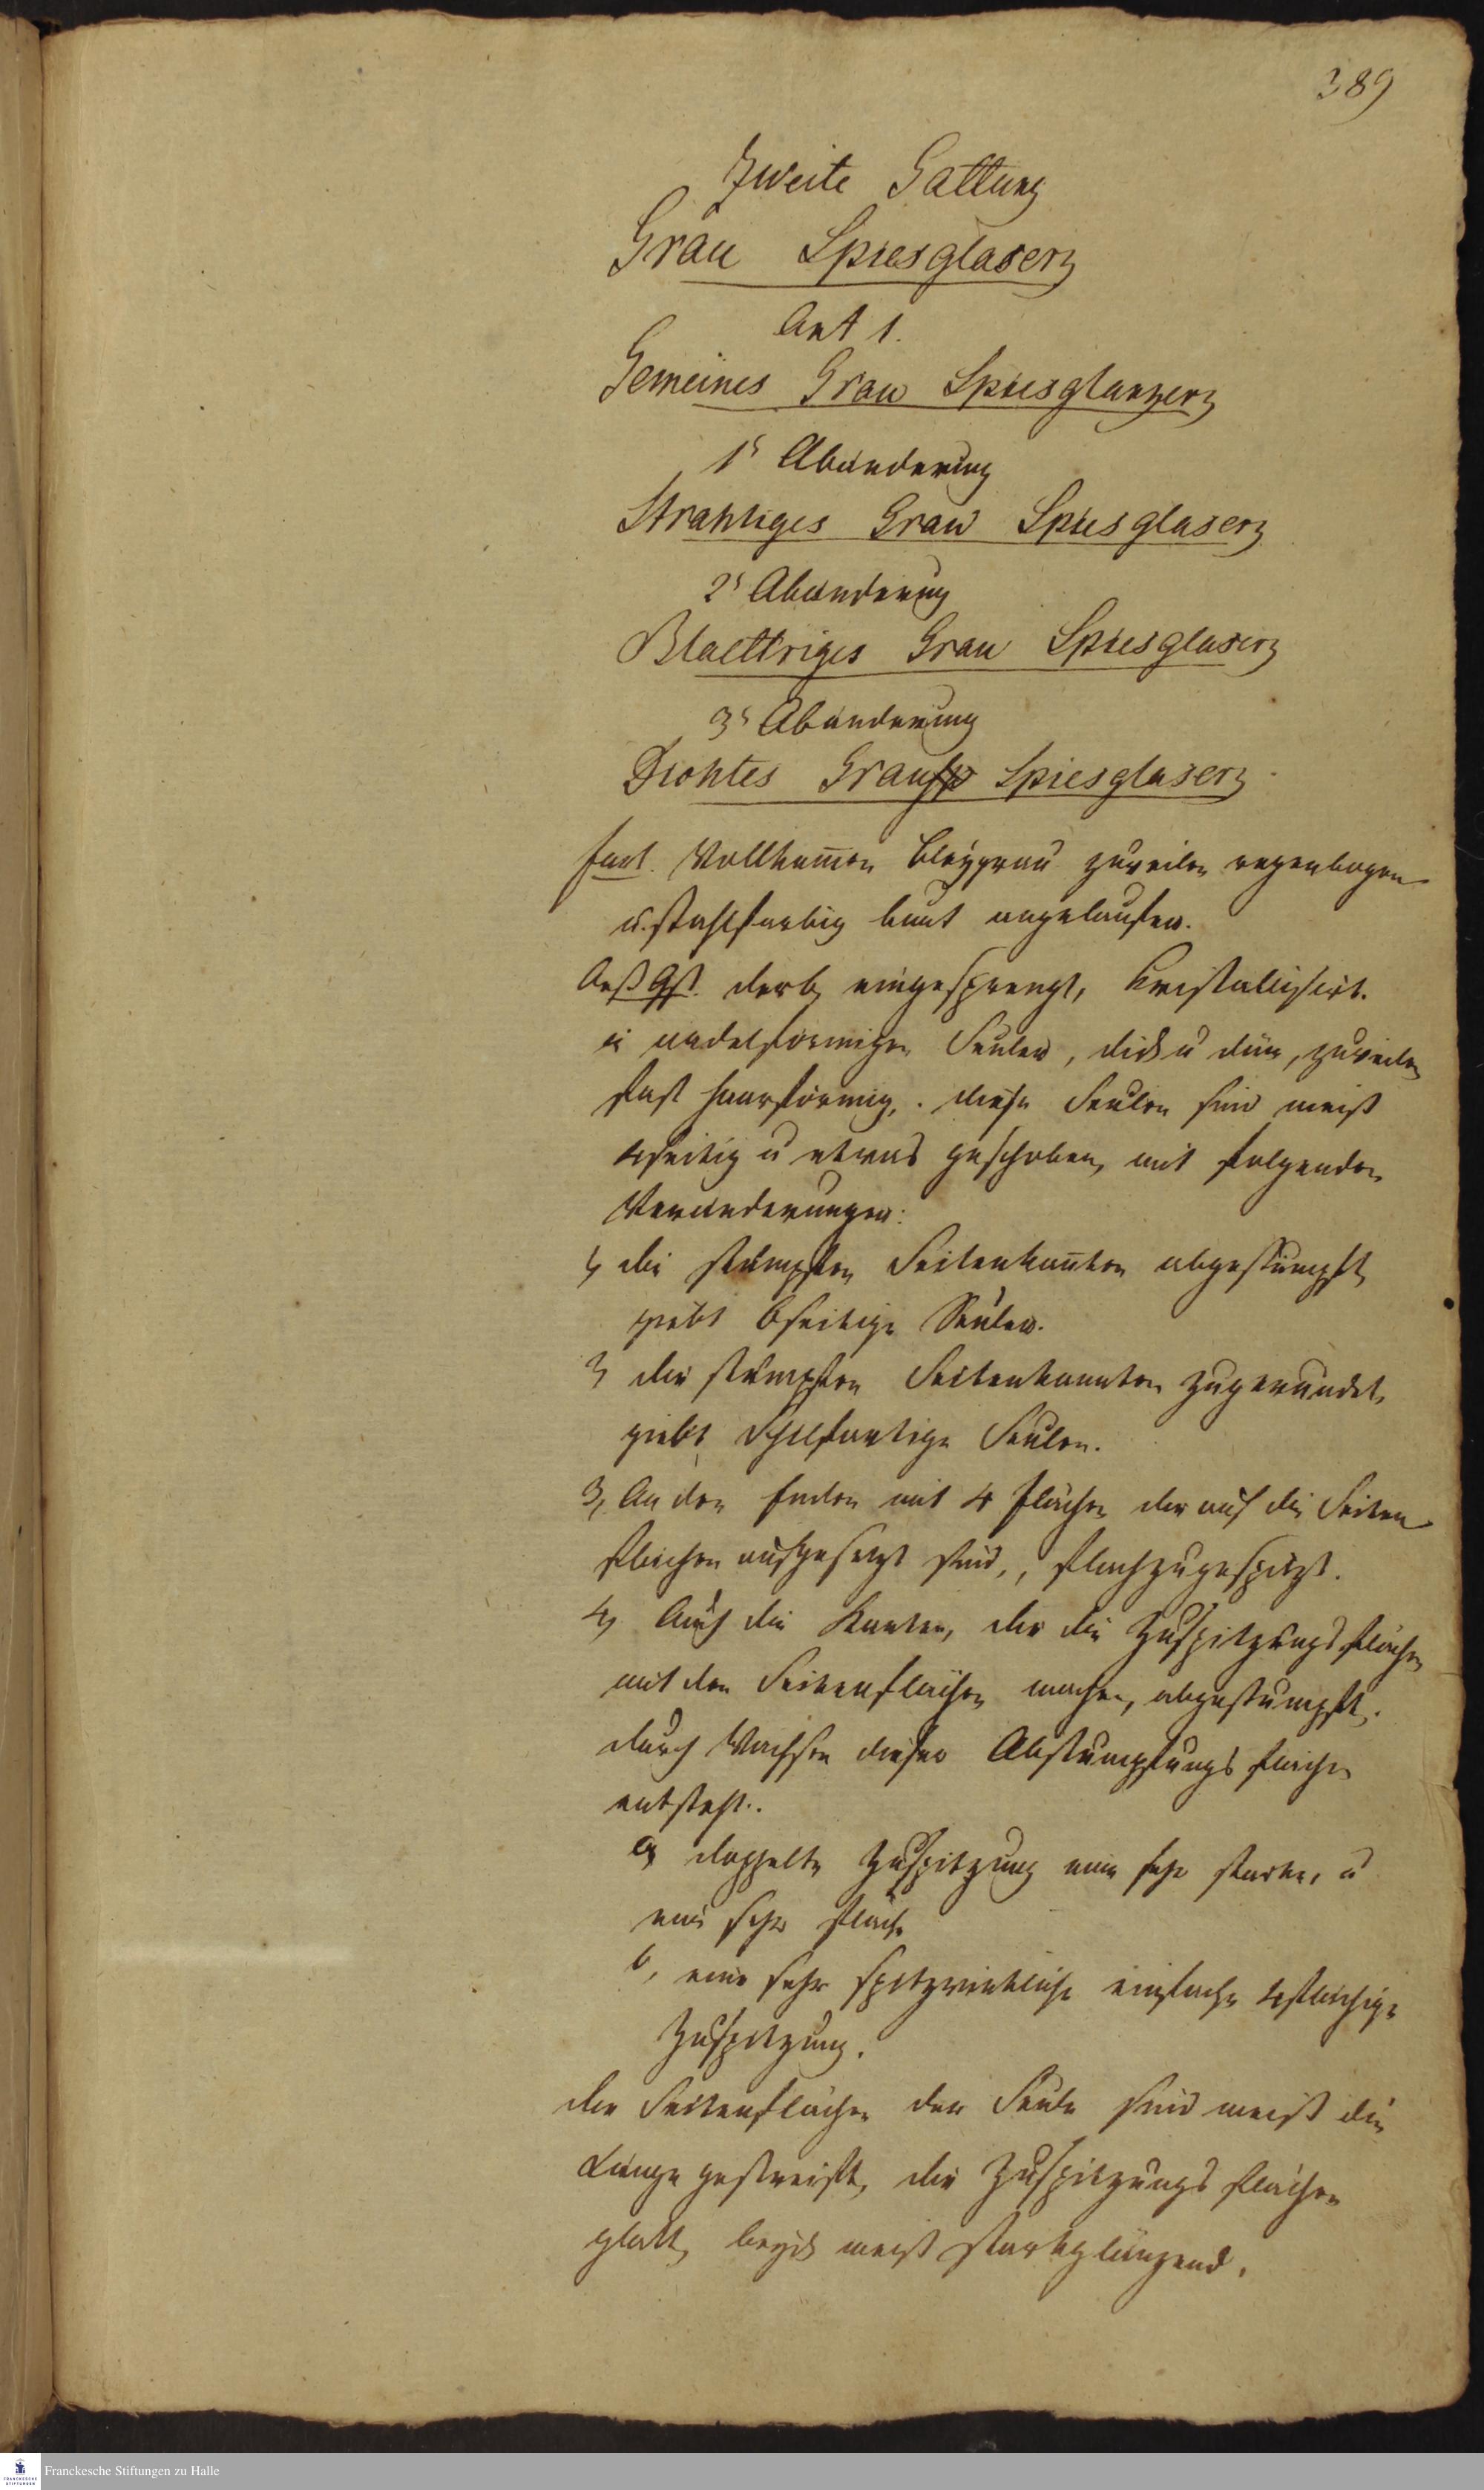 389
Zweite Gattung
Grau Spiesglaserz
Art 1.
Gemeines Grau Spiesglanzerz
1s Abänderung
Strahliges Grau Spiesglaserz
2s Abänderung
Blaettriges Grau Spiesglaserz
3s Abänderung
Dichtes Grau Spiesglaserz
Farb. Vollkom̄en bleygrau zuweilen regenbogen
u. stahlfarbig bunt angelaufen.
Aeß Gst. derb, eingesprengt, kristallisirt.
in nadelförmigen Seulen, dick u dün, zuweilen
fast haarförmig, diese Seulen sind meist
4seitig u etwas geschoben, mit folgenden
Veränderungen:
1, die stumpfen Seitenkan̄ten abgestumpft,
giebt 6seitige Seulen.
2, die stumpfen Seitenkannten zugerundet,
giebt schilfartige Seulen.
3, An den Enden mit 4 Flächen die auf die Seiten
flächen aufgesetzt sind, flachzugespitzt.
4, Auch die Kanten, die die Zuspitzungsflächen
mit den Seitenflächen machen, abgestumpft.
durch Wachsen dieser Abstumpfungs flächen
entsteht.
a, doppelte Zuspitzung eine sehr starke, u
eine sehr flache
b, eine sehr spitzwinkliche einfache 4flächige
Zuspitzung.
die Seitenflächen der Seule sind meist die
Länge gestreift, die Zuspitzungs flächen
glatt, beyde meist starkglänzend.
Franckesche Stiftungen zu Halle
FRANCKESCHE
STIFTUNGEN